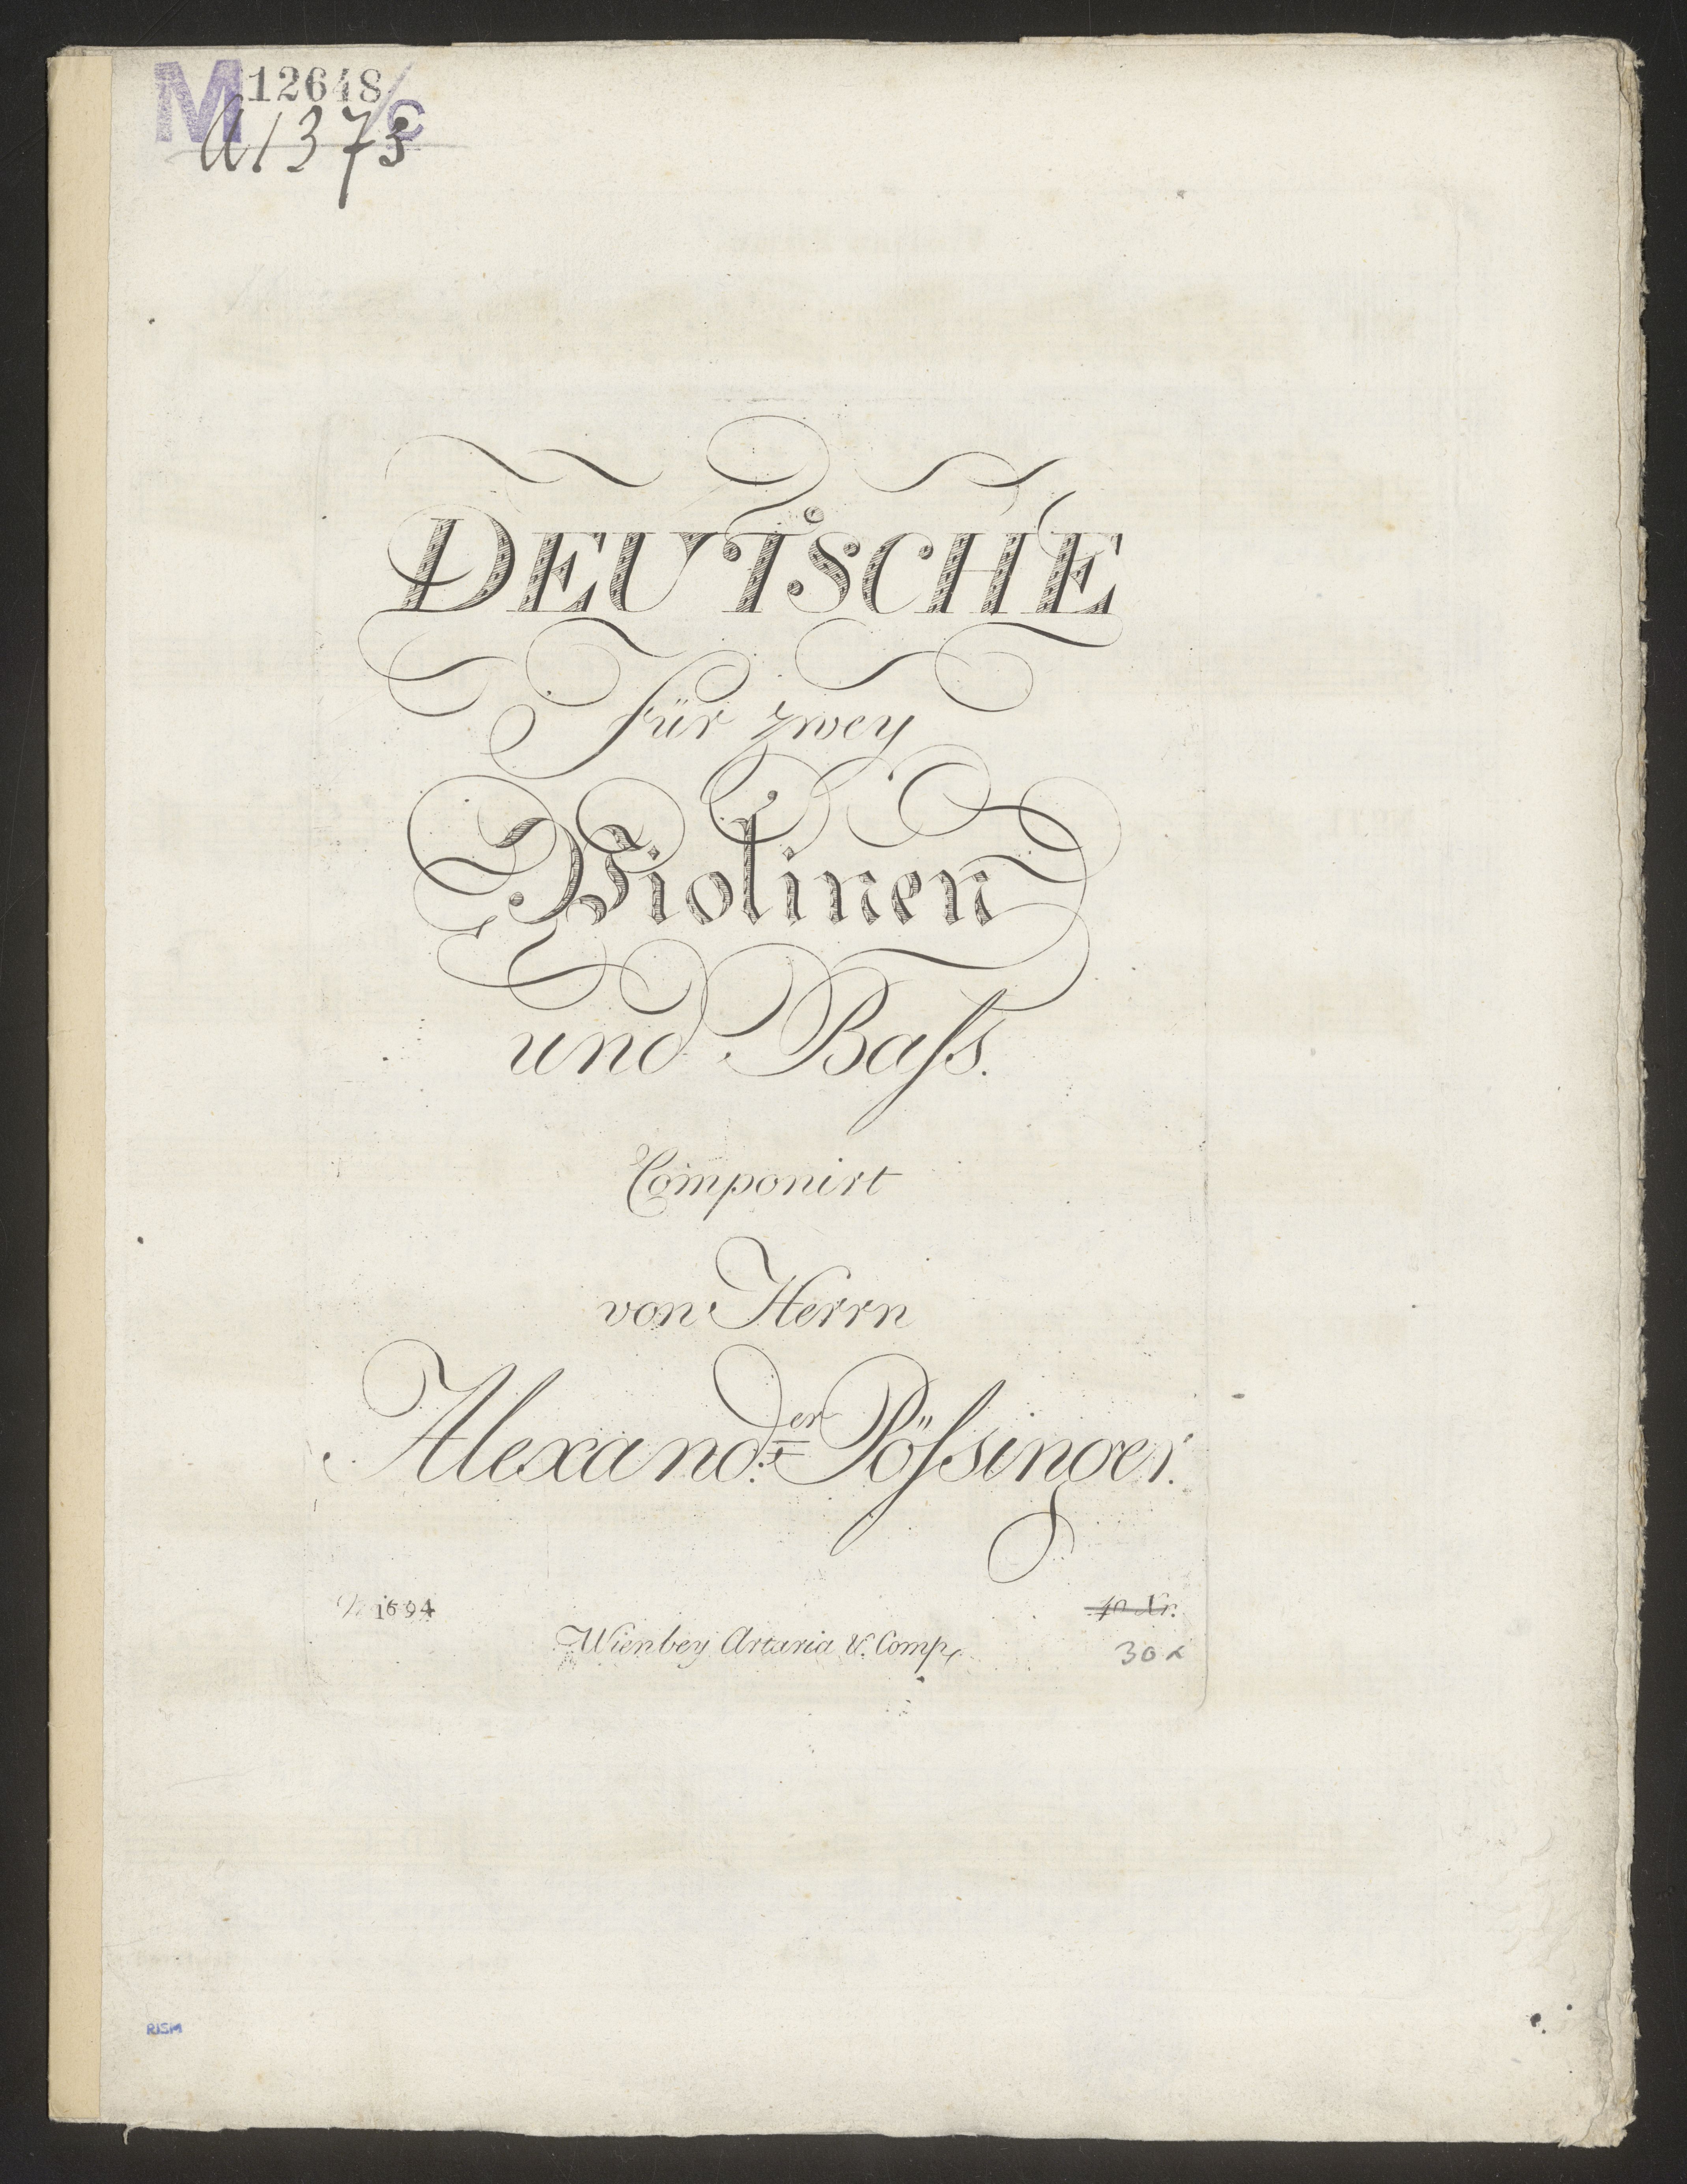 M 12648/C
A 1373
DEUTSCHE
für zwey
Violinen
und Baſs.
Componirt
von Herrn
Alexand:er Pöſsinger.
1694
Wien bey Artaria u. Comp.
30 x
RISM